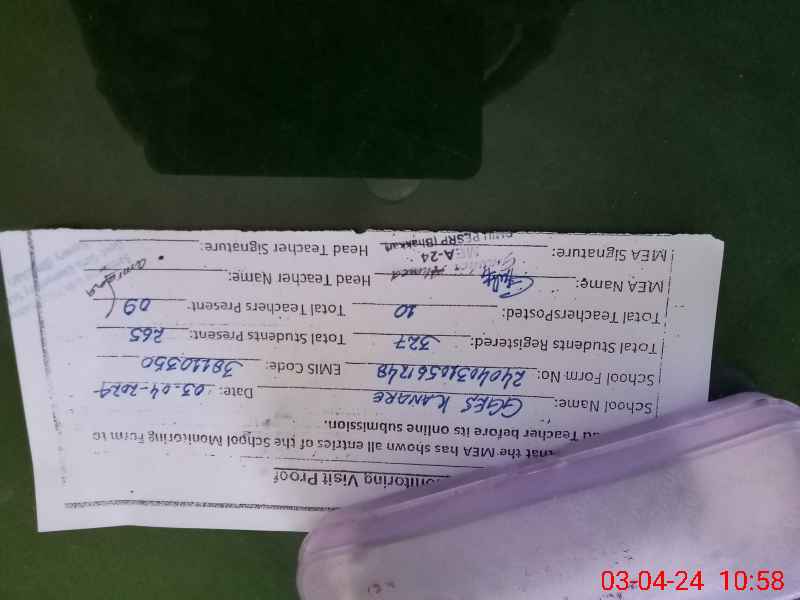 onitoring Visit Proof
that the MEA has shown all entries of the School Monitoring Form to
ad Teacher before its online submission.
School Name: GGES KANARE Date: 03-04-2024
School Form No: 24040310561248 EMIS Code: 38110350
Total Students Registered: 327 Total Students Present: 265
Total TeachersPosted: 10 Total Teachers Present: 09
MEA Name: Head Teacher Name:
MEA Signature: MEA-24 Head Teacher Signature:
PESRP (Bhakkar)
03-04-24 10:58